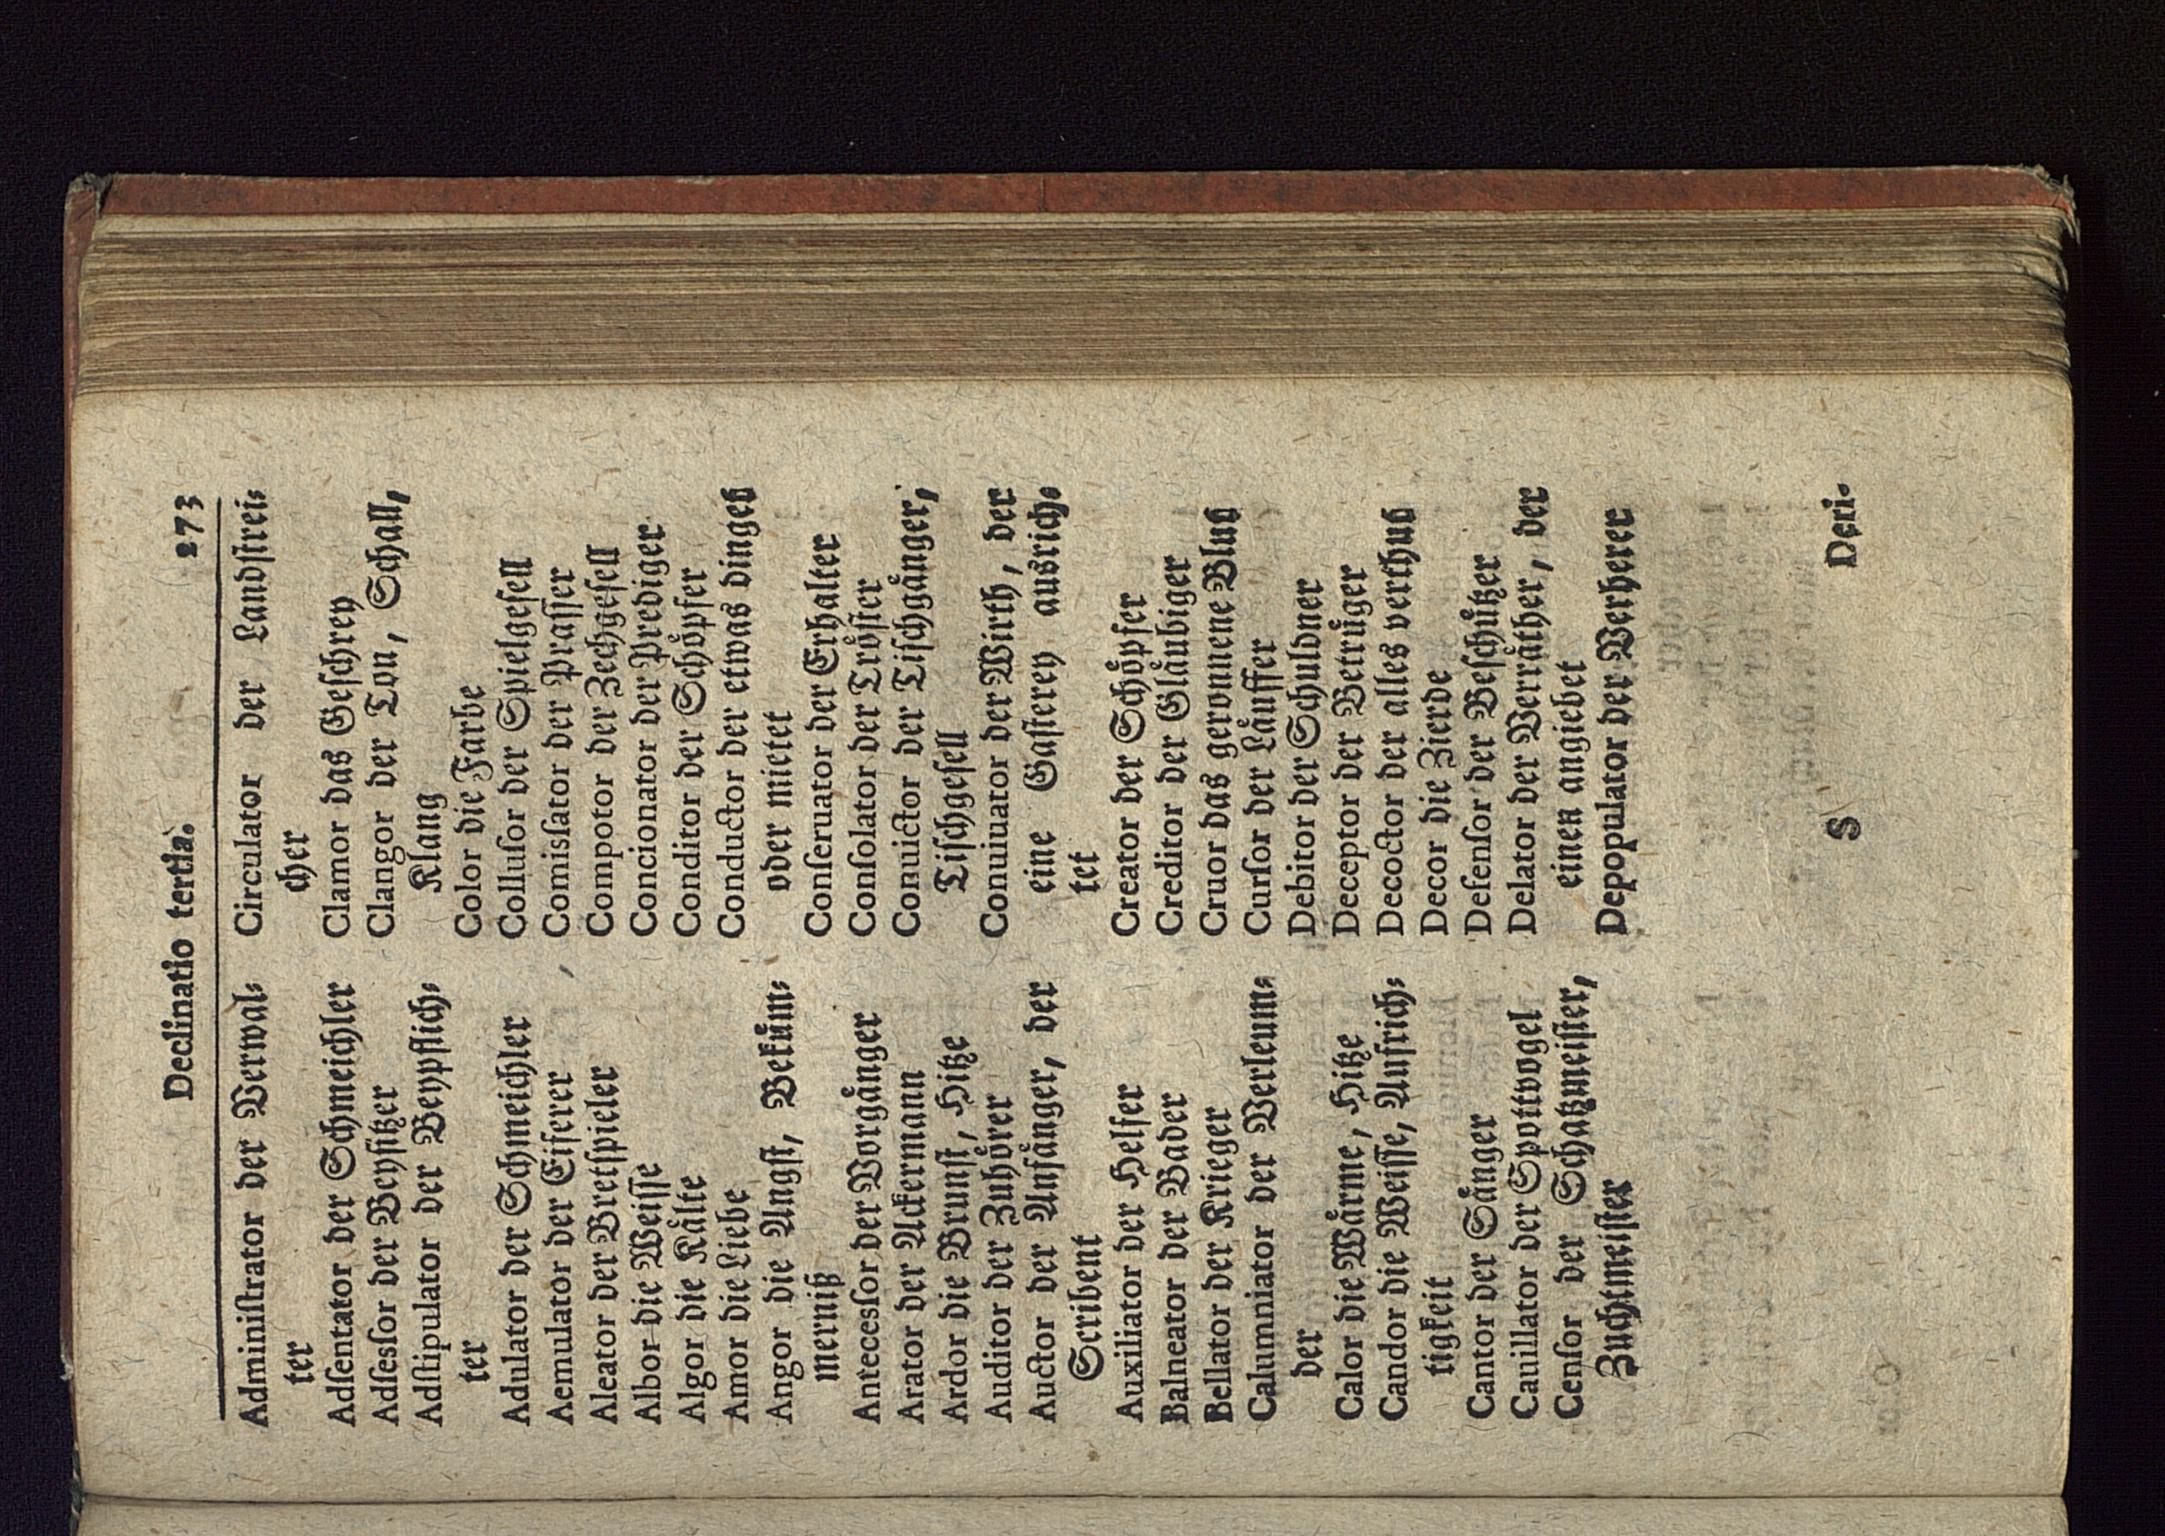 Declinatio tertia. 273
Adminiſtrator der Verwal-
ter
Adſentator der Schmeichler
Adſeſſor der Beyſitzer
Adſtipulator der Beypflich-
ter
Adulator der Schmeichler
Aemulator der Eiferer
Aleator der Bretſpieler
Albor die Weiſſe
Algor die Kaͤlte
Amor die Liebe
Angor die Angſt, Bekuͤm-
merniß
Anteceſſor der Vorgaͤnger
Arator der Ackermann
Ardor die Brunſt, Hitze
Auditor der Zuhoͤrer
Auctor der Anfaͤnger, der
Scribent
Auxiliator der Helfer
Balneator der Bader
Bellator der Krieger
Calumniator der Verleum-
der
Calor die Waͤrme, Hitze
Candor die Weiſſe, Aufrich-
tigkeit
Cantor der Saͤnger
Cauillator der Spottvogel
Cenſor der Schatzmeiſter,
Zuchtmeiſter
Circulator der Landſtrei-
cher
Clamor das Geſchrey
Clangor der Ton, Schall,
Klang
Color die Farbe
Colluſor der Spielgeſell
Comiſſator der Praſſer
Compotor der Zechgeſell
Concionator der Prediger
Conditor der Schoͤpfer
Conductor der etwas dinget
oder mietet
Conſeruator der Erhalter
Conſolator der Troͤſter
Conuictor der Tiſchgaͤnger,
Tiſchgeſell
Conuiuator der Wirth, der
eine Gaſterey ausrich-
tet
Creator der Schoͤpfer
Creditor der Glaͤubiger
Cruor das geronnene Blut
Curſor der Laͤuffer
Debitor der Schuldner
Deceptor der Betruͤger
Decoctor der alles verthut
Decor die Zierde
Defenſor der Beſchuͤtzer
Delator der Verraͤther, der
einen angiebet
Depopulator der Verherer
S Deri-